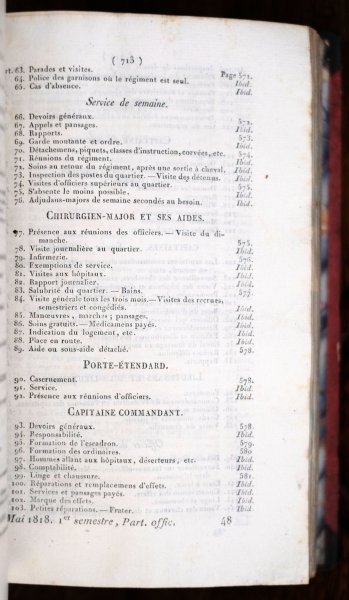 ( 713 )
rt. 63. Parades et visites. Page 571.
64. Police des garnisons où le régiment est seul. Ibid.
65. Cas d'absence. Ibid.
Service de semaine.
66. Devoirs généraux. 572.
67. Appels et pansages. Ibid.
68. Rapports. Ibid.
69. Garde montante et ordre. 573.
70. Détachemens, piquets, classes d'instruction, corvées, etc. Ibid.
71. Réunions du régiment. 574.
72. Soins au retour du régiment, après une sortie à cheval. Ibid.
73. Inspection des postes du quartier. — Visite des détenus. Ibid.
74. Visites d'officiers supérieurs au quartier. 575.
75. S'absente le moins possible. Ibid.
76. Adjudans-majors de semaine secondés au besoin. Ibid.
CHIRURGIEN-MAJOR ET SES AIDES.
77. Présence aux réunions des officiers. — Visite du di-
manche. 575.
78. Visite journalière au quartier. Ibid.
79. Infirmerie. 576.
80. Exemptions de service. Ibid.
81. Visites aux hôpitaux. Ibid.
82. Rapport journalier. Ibid.
83. Salubrité du quartier. — Bains. Ibid.
84. Visite générale tous les trois mois. — Visites des recrues, 577.
semestriers et congédiés. Ibid.
85. Manœuvres, marches; pansages. Ibid.
86. Soins gratuits. — Médicamens payés. Ibid.
87. Indication du logement, etc. Ibid.
88. Place en route. Ibid.
89. Aide ou sous-aide détaché. 578.
PORTE-ÉTENDARD.
90. Casernement. 578.
91. Service. Ibid.
92. Présence aux réunions d'officiers. Ibid.
CAPITAINE COMMANDANT.
93. Devoirs généraux. 578.
94. Responsabilité. Ibid.
95. Formation de l'escadron. 579.
96. Formation des ordinaires. 580
97. Hommes allant aux hôpitaux, déserteurs, etc. Ibid.
98. Comptabilité. Ibid.
99. Linge et chaussure. 581.
100. Réparations et remplacemens d'effets. Ibid.
101. Services et pansages payés. Ibid.
102. Marque des effets. Ibid.
103. Petites réparations. — Frater. Ibid.
Mai 1818. 1er semestre, Part. offic. 48